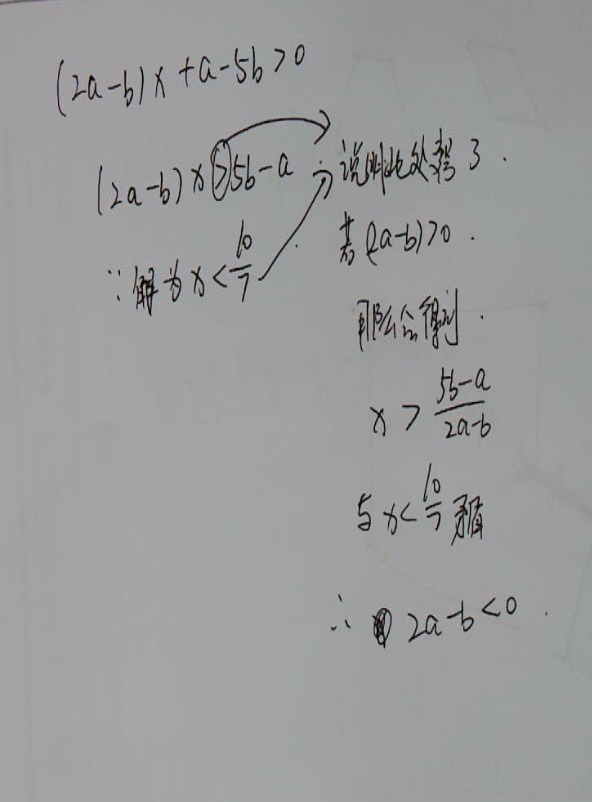 (2a-b)x+a-5b>0
(2a-b)x>5b-a
∵解为x<10/7
∴说明此处变号了.
若(2a-b)>0.
那么会得到.
x>(5b-a)/(2a-b)
与x<10/7矛盾
∴2a-b<0.